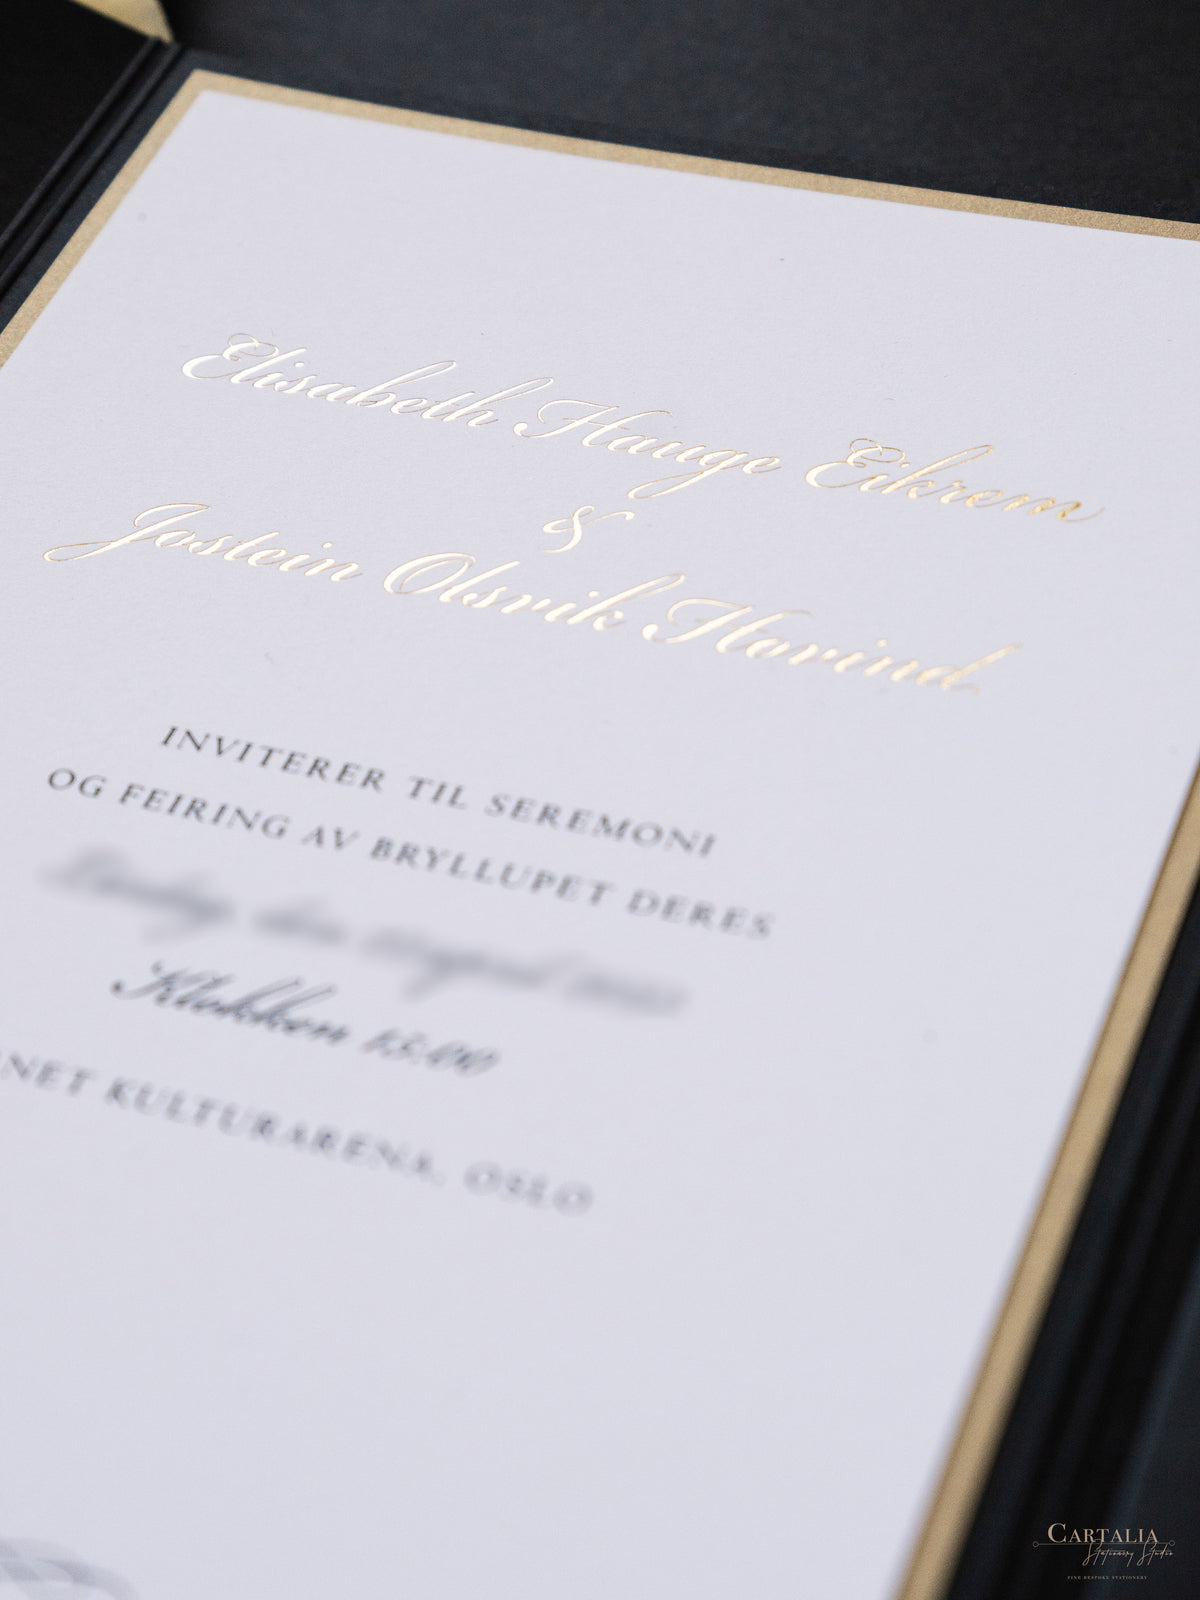 Elisabeth Hauge Eikrem
&
Jostein Olsvik Hovind
INVITERER TIL SEREMONI
OG FEIRING AV BRYLLUPET DERES
Klokken 15:00
NET KULTURARENA, OSLO
CARTALIA
Stationery Studio
FINE BESPOKE STATIONERY